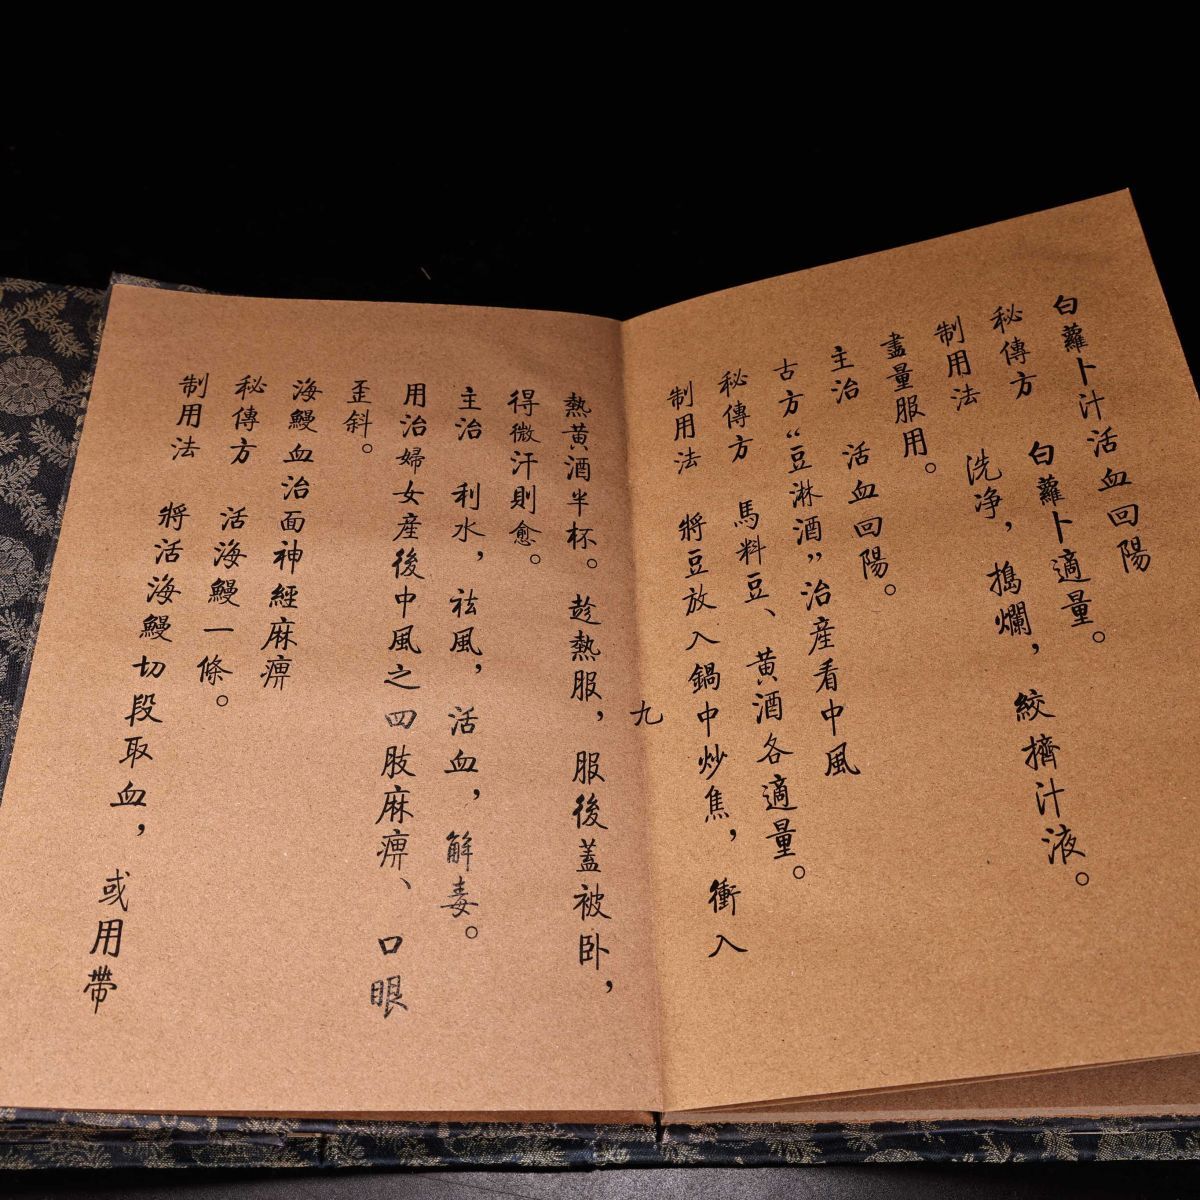 白蘿卜汁活血回陽
秘傳方　白蘿卜適量。
制用法　洗净，搗爛，絞擠汁液。
盡量服用。
主治　活血回陽。
古方“豆淋酒”治産看中風
秘傳方　馬料豆、黄酒各適量。
制用法　將豆放入鍋中炒焦，衝入
九
熱黄酒半杯。趁熱服，服後蓋被卧，
得微汗則愈。
主治　利水，祛風，活血，解毒。
用治婦女産後中風之四肢麻痹、口眼
歪斜。
海鰻血治面神經麻痹
秘傳方　活海鰻一條。
制用法　將活海鰻切段取血，或用帶